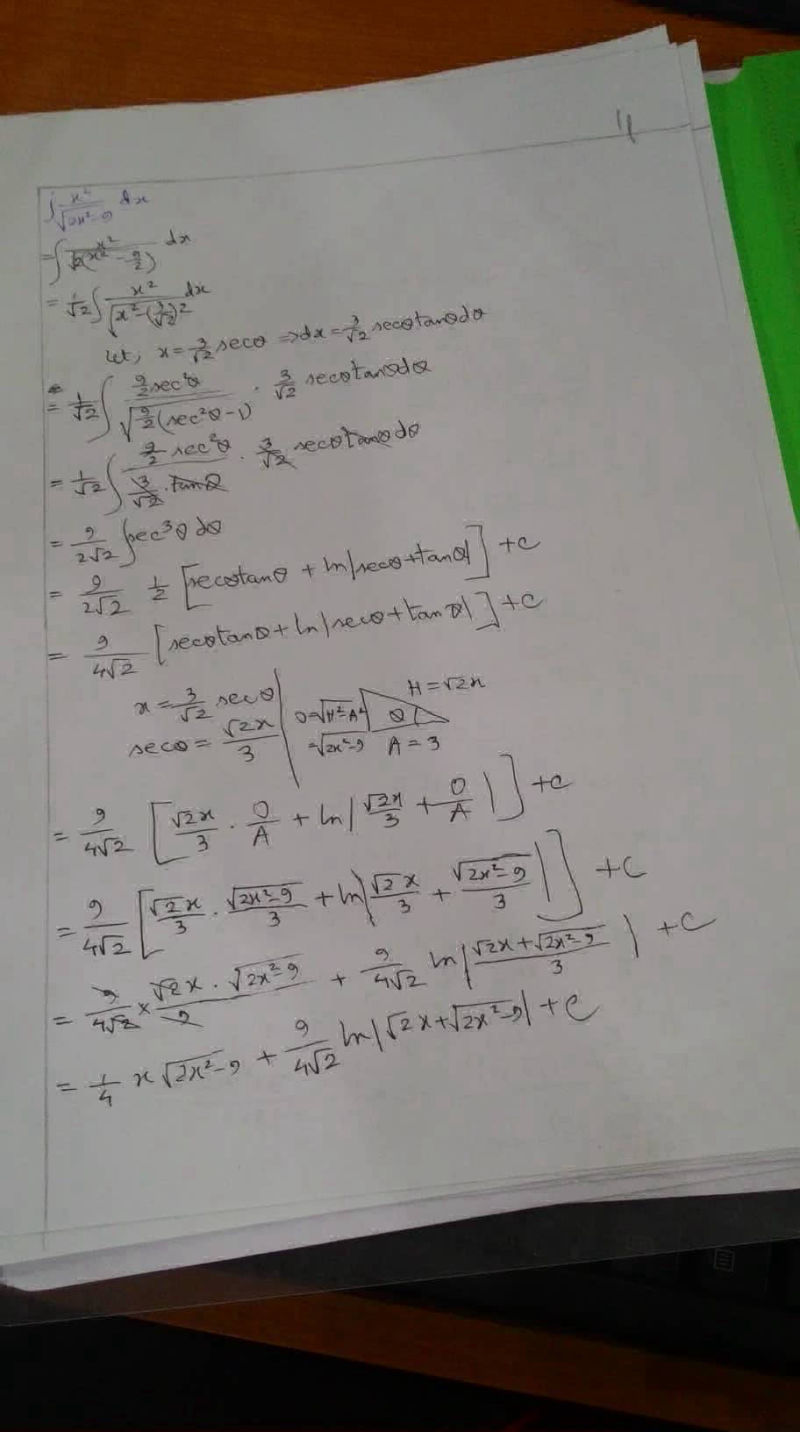 11
∫ x²/√(2x²-9) dx
= ∫ x²/√(2(x² - 9/2)) dx
= 1/√2 ∫ x²/√(x² - (3/√2)²) dx
Let, x = 3/√2 secθ ⇒ dx = 3/√2 secθtanθdθ
= 1/√2 ∫ (9/2 sec²θ)/√(9/2 (sec²θ - 1)) · 3/√2 secθtanθdθ
= 1/√2 ∫ (9/2 sec²θ)/(3/√2 · tanθ) · 3/√2 secθtanθdθ
= 9/(2√2) ∫sec³θ dθ
= 9/(2√2) 1/2 [secθtanθ + ln|secθ+tanθ|] + C
= 9/(4√2) [secθtanθ + ln|secθ+tanθ|] + C
x = 3/√2 secθ
secθ = √2x/3
O = √(H²-A²)
= √(2x²-9)
H = √2x
θ
A = 3
= 9/(4√2) [√2x/3 · O/A + ln|√2x/3 + O/A|] + C
= 9/(4√2) [√2x/3 · √(2x²-9)/3 + ln|√2x/3 + √(2x²-9)/3|] + C
= 9/(4√2) × (√2x · √(2x²-9))/9 + 9/(4√2) ln|(√2x + √(2x²-9))/3| + C
= 1/4 x√(2x²-9) + 9/(4√2) ln|√2x + √(2x²-9)| + C